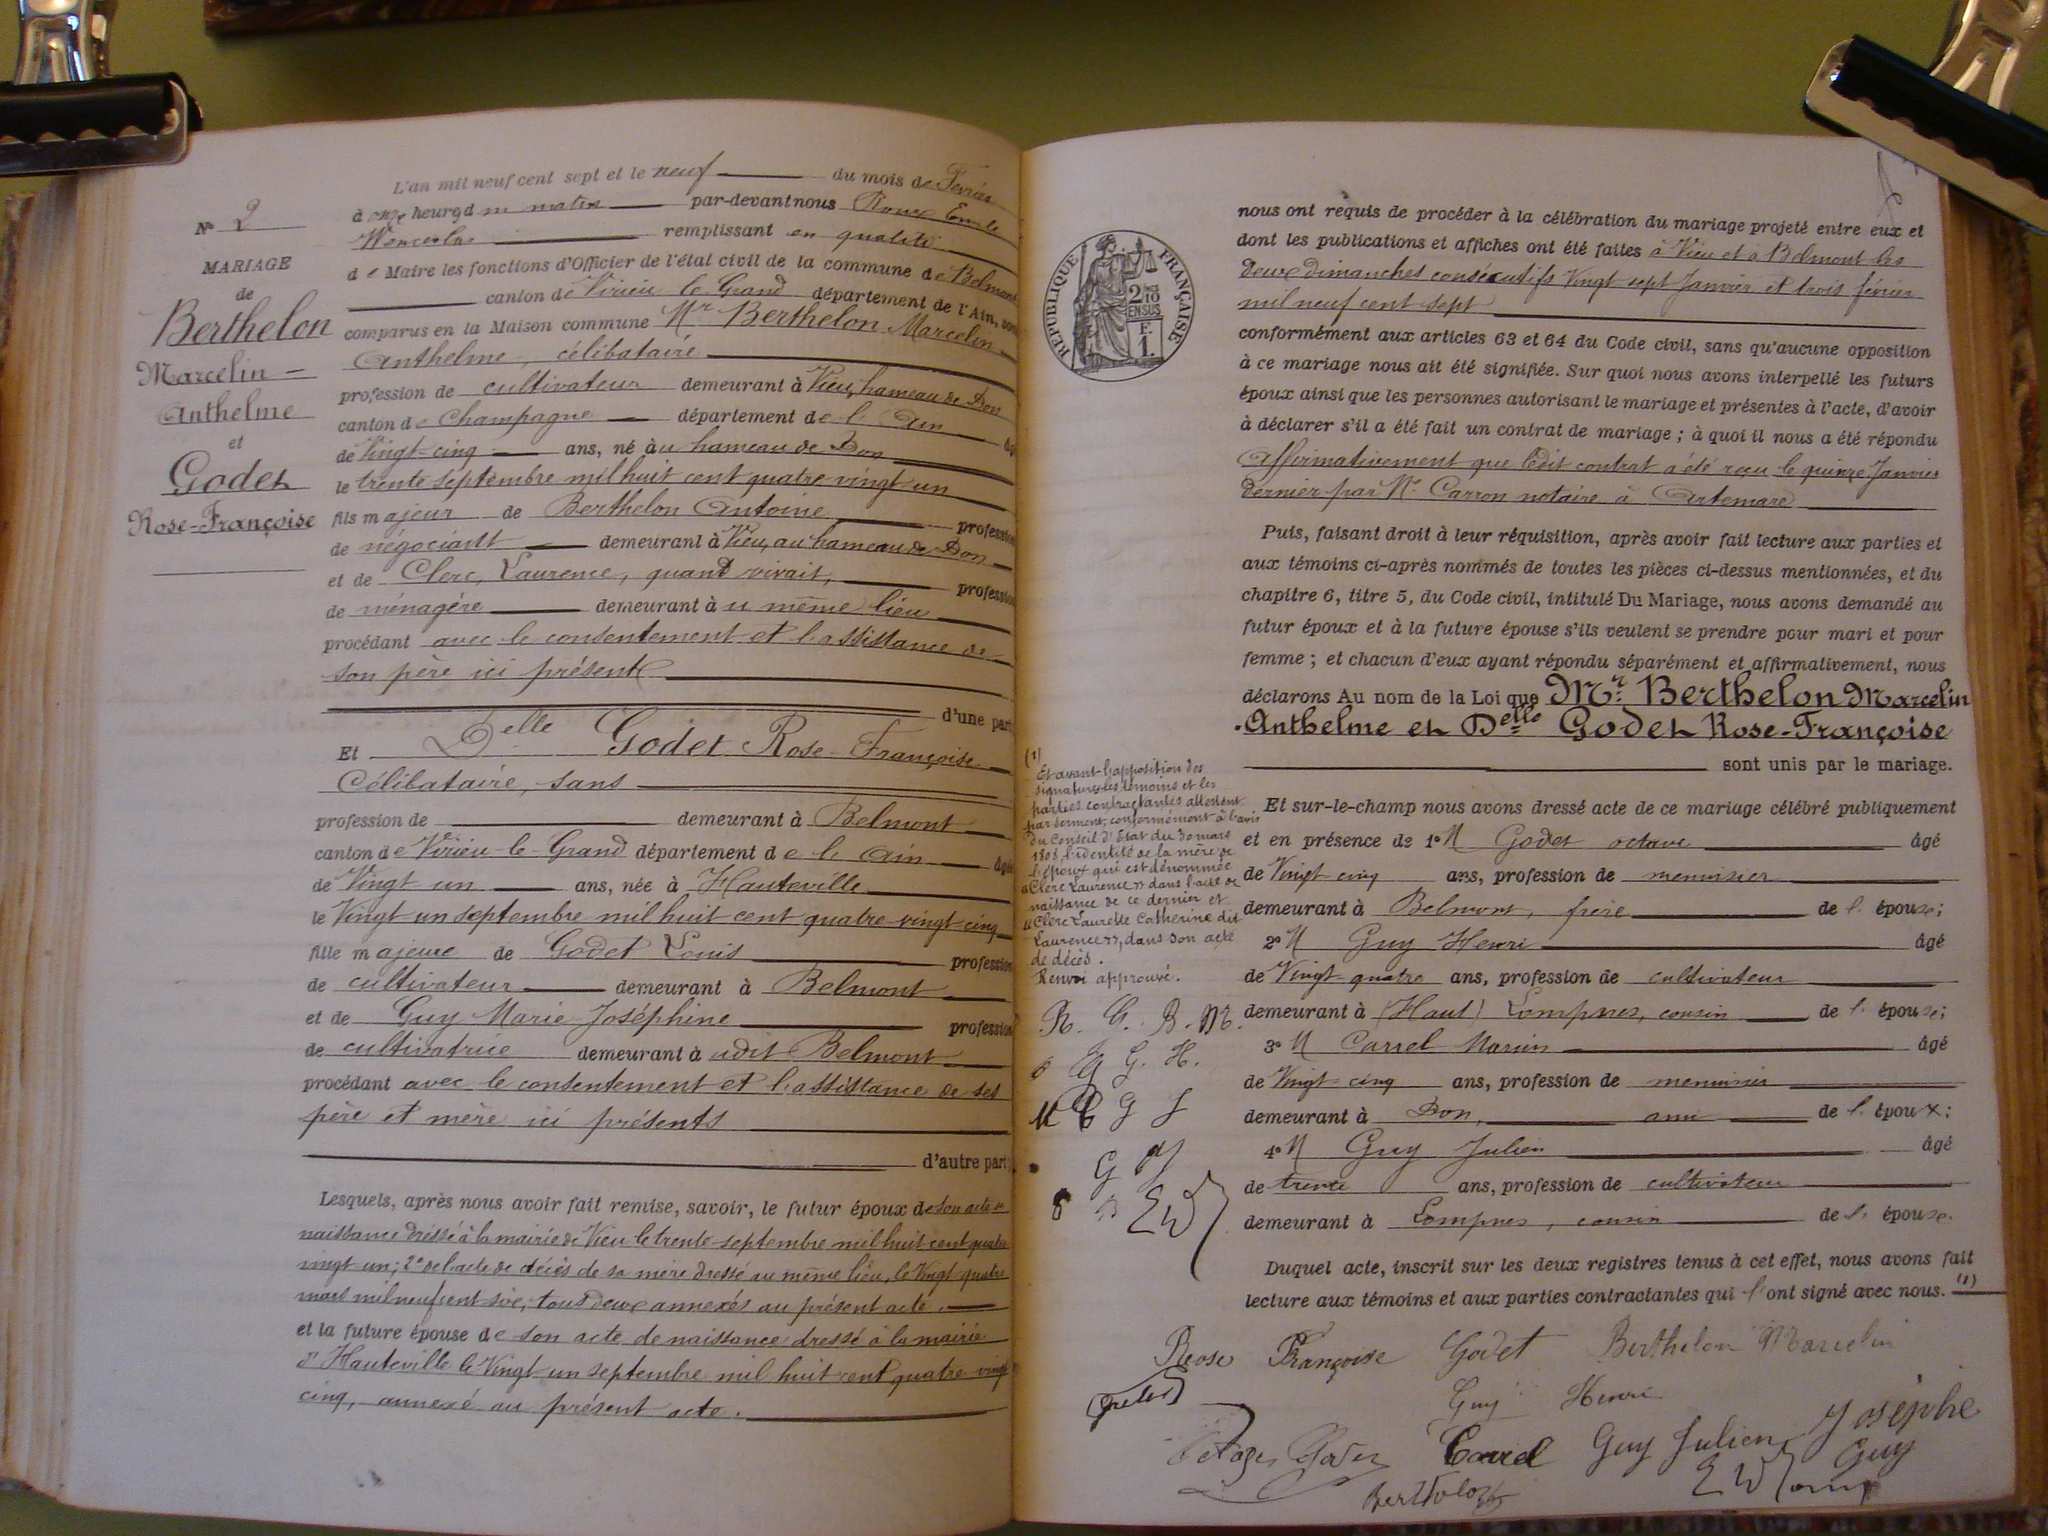 N° 2
MARIAGE
de
Berthelon
Marcelin
Anthelme
et
Godet
Rose-Françoise
L'an mil neuf cent sept et le neuf du mois de Février
à onze heures du matin par-devant nous Roux Emile
Wenceslas remplissant en qualité
de Maire les fonctions d'Officier de l'état civil de la commune de Belmont
canton de Virieu le Grand département de l'Ain, sont
comparus en la Maison commune Mr Berthelon Marcelin
Anthelme, célibataire
profession de cultivateur demeurant à Vieu, hameau de Don
canton de Champagne département de l'Ain âgé
de Vingt-cinq ans, né à u hameau de Don
le trente septembre mil huit cent quatre-vingt un
fils majeur de Berthelon Antoine profession
de négociant demeurant à Vieu, au hameau de Don
et de Clerc, Laurence, quand vivait, profession
de ménagère demeurant à u même lieu
procédant avec le consentement et l'assistance de
son père ici présent
d'une part
Et Delle Godet Rose-Françoise
Célibataire, sans
profession de demeurant à Belmont
canton de Virieu-le-Grand département de l'Ain âgée
de Vingt un ans, née à Hauteville
le Vingt un septembre mil huit cent quatre-vingt-cinq
fille majeure de Godet Louis profession
de cultivateur demeurant à Belmont
et de Guy Marie-Joséphine profession
de cultivatrice demeurant à udit Belmont
procédant avec le consentement et l'assistance de ses
père et mère ici présents
d'autre part;
Lesquels, après nous avoir fait remise, savoir, le futur époux de son acte de
naissance dressé à la mairie de Vieu le trente septembre mil huit cent quatre
vingt un; 2° de l'acte de décès de sa mère dressé au même lieu, le Vingt quatre
mars mil neuf cent six, tous deux annexés au présent acte.
et la future épouse de son acte de naissance dressé à la mairie
d'Hauteville le Vingt un septembre mil huit cent quatre-vingt
cinq, annexé au présent acte.
RÉPUBLIQUE FRANÇAISE
2 10
EN SUS
F.
1.
nous ont requis de procéder à la célébration du mariage projeté entre eux et
dont les publications et affiches ont été faites à Vieu et à Belmont les
deux dimanches consécutifs Vingt sept Janvier et trois février
mil neuf cent sept
conformément aux articles 63 et 64 du Code civil, sans qu'aucune opposition
à ce mariage nous ait été signifiée. Sur quoi nous avons interpellé les futurs
époux ainsi que les personnes autorisant le mariage et présentes à l'acte, d'avoir
à déclarer s'il a été fait un contrat de mariage; à quoi il nous a été répondu
Affirmativement que ledit contrat a été reçu le quinze Janvier
dernier par Me Carron notaire à Artemare
Puis, faisant droit à leur réquisition, après avoir fait lecture aux parties et
aux témoins ci-après nommés de toutes les pièces ci-dessus mentionnées, et du
chapitre 6, titre 5, du Code civil, intitulé Du Mariage, nous avons demandé au
futur époux et à la future épouse s'ils veulent se prendre pour mari et pour
femme; et chacun d'eux ayant répondu séparément et affirmativement, nous
déclarons Au nom de la Loi que Mr Berthelon Marcelin
Anthelme et Delle Godet Rose-Françoise
sont unis par le mariage.
Et sur-le-champ nous avons dressé acte de ce mariage célébré publiquement
et en présence de 1° M Godet octave âgé
de Vingt cinq ans, profession de menuisier
demeurant à Belmont, frère de l'épouse;
2° M Guy Henri âgé
de Vingt-quatre ans, profession de cultivateur
demeurant à (Haut) Lompnes, cousin de l'épouse;
3° M Carrel Marius âgé
de Vingt-cinq ans, profession de menuisier
demeurant à Don, ami de l'époux;
4° M Guy Julien âgé
de trente ans, profession de cultivateur
demeurant à Lompnes, cousin de l'épouse.
Duquel acte, inscrit sur les deux registres tenus à cet effet, nous avons fait
lecture aux témoins et aux parties contractantes qui l'ont signé avec nous. (1)
(1)
Et avant l'apposition des
signatures les témoins et les
parties contractantes attestent
par serment, conformément à l'avis
du Conseil d'Etat du 30 mars
1808, l'identité de la mère de
l'époux qui est dénommée
"Clerc Laurence" dans l'acte de
naissance de ce dernier et
"Clerc Laurette Catherine dit
Laurence", dans son acte
de décès.
Renvoi approuvé.
R. G. B. M.
G. H.
G J
Rose Françoise Godet Berthelon Marcelin
Godet
Guy Henri
Octave Godet Carrel Guy Julien Josephe
Guy
Berthelon